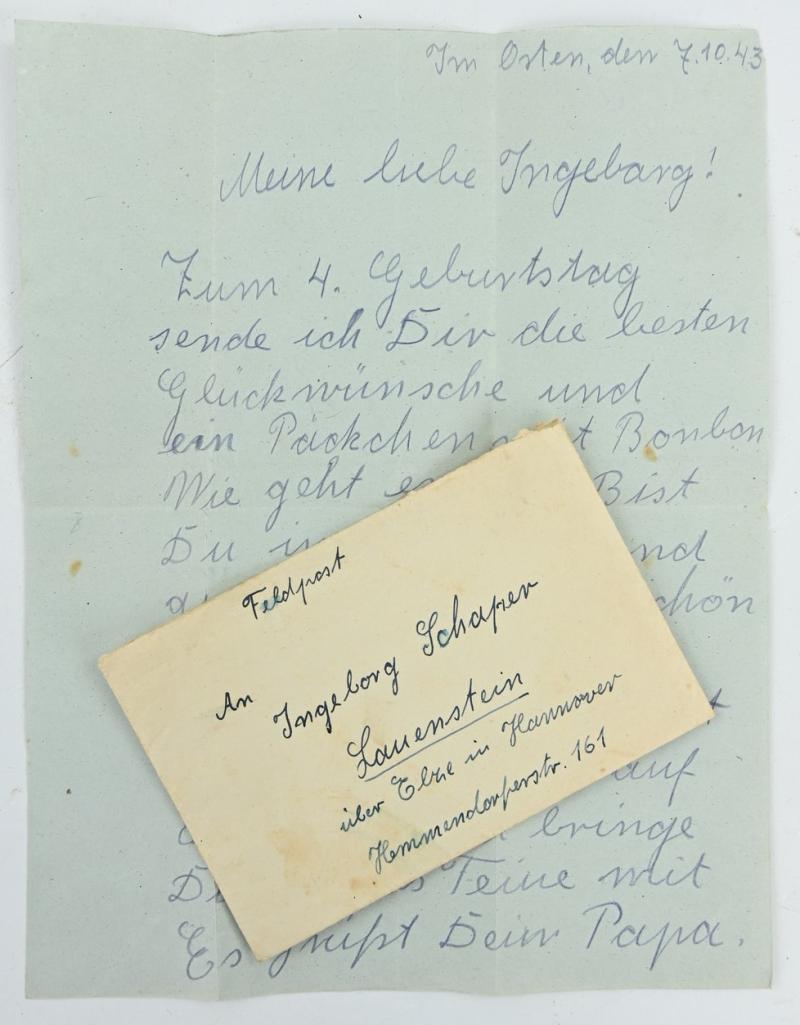 Im Osten, den 7.10.43
Meine liebe Ingeborg!
Zum 4. Geburtstag
sende ich Dir die besten
Glückwünsche und
ein Päckchen Bonbon
Wie geht Bist
Du
auf
bringe
Feine mit
Es grüßt Dein Papa.
Feldpost
An
Ingeborg Schaper
Lauenstein
über Elze in Hannover
Hemmendorferstr. 161